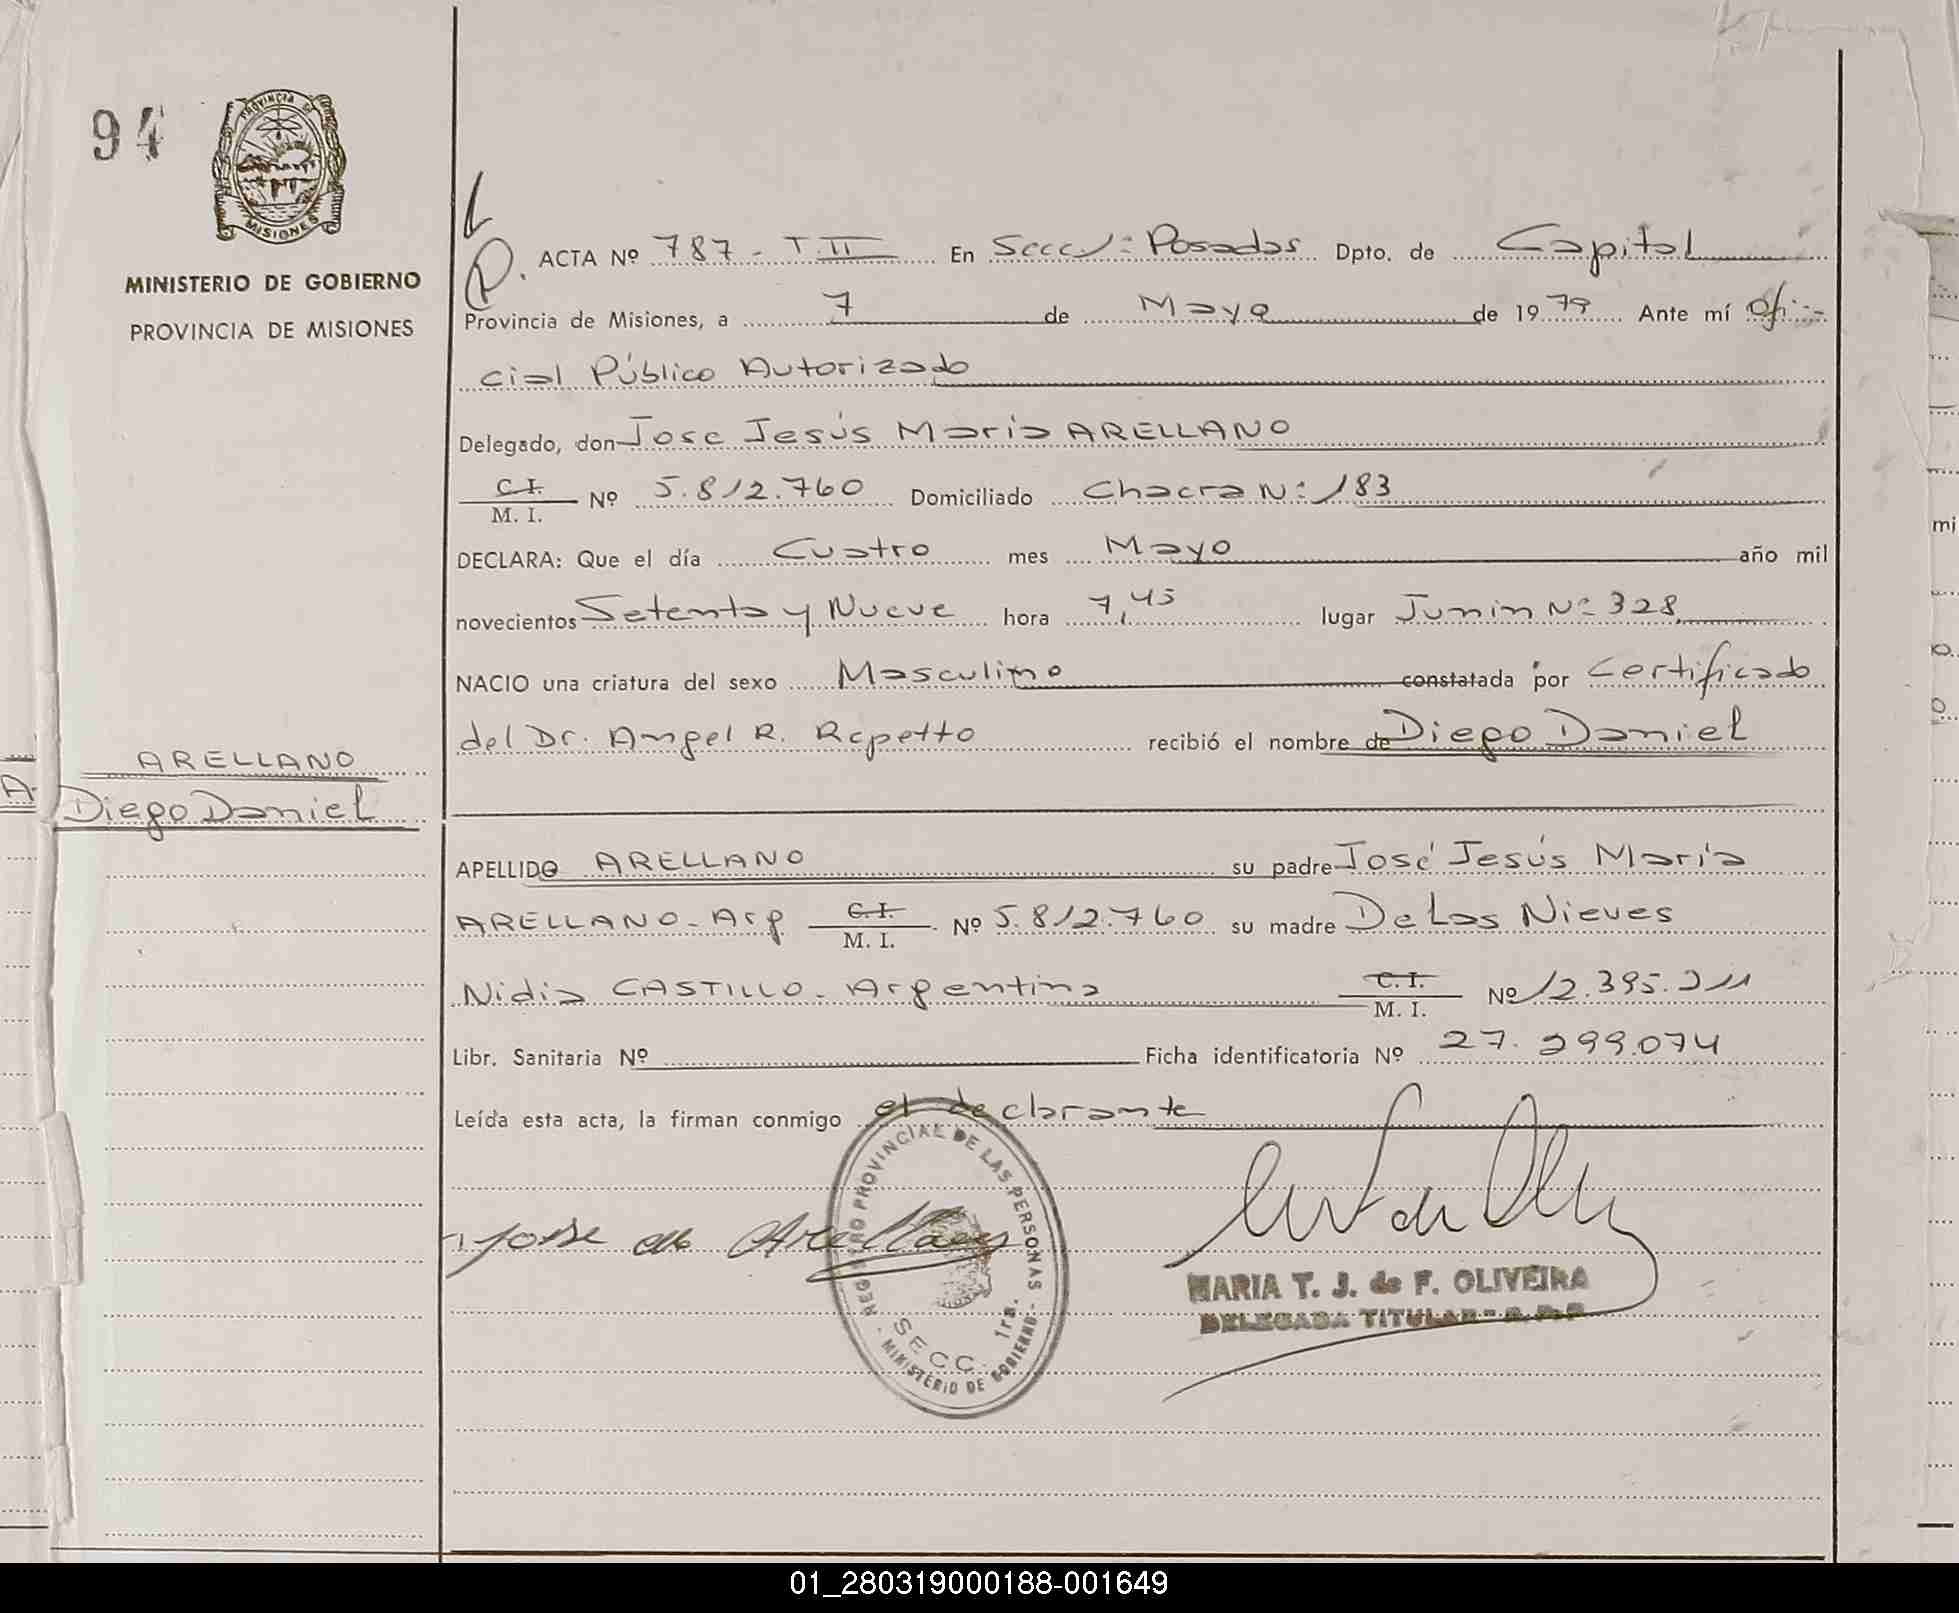 94
PROVINCIA DE
MISIONES
MINISTERIO DE GOBIERNO
PROVINCIA DE MISIONES
ARELLANO
Diego Daniel
ACTA Nº 787 - T II En Secc 1ª Posadas Dpto. de Capital
Provincia de Misiones, a 7 de Mayo de 1979 Ante mí Ofi-
cial Público Autorizado
Delegado, don Jose Jesús Maria ARELLANO
C.I.
M. I. Nº 5.812.760 Domiciliado Chacra Nº 183
DECLARA: Que el día Cuatro mes Mayo año mil
novecientos Setenta y Nueve hora 7,45 lugar Junin Nº 328
NACIO una criatura del sexo Masculino constatada por Certificado
del Dr. Angel R. Repetto recibió el nombre de Diego Daniel
APELLIDO ARELLANO su padre José Jesús María
ARELLANO - Arg C.I.
M. I. Nº 5.812.760 su madre De Las Nieves
Nidia CASTILLO - Argentina C.I.
M. I. Nº 12.395.211
Libr. Sanitaria Nº Ficha identificatoria Nº 27.299.074
Leída esta acta, la firman conmigo el declarante
REGISTRO PROVINCIAL DE LAS PERSONAS
SECC. 1ra.
- MINISTERIO DE GOBIERNO -
MARIA T. J. de F. OLIVEIRA
DELEGADA TITULAR
01_280319000188-001649